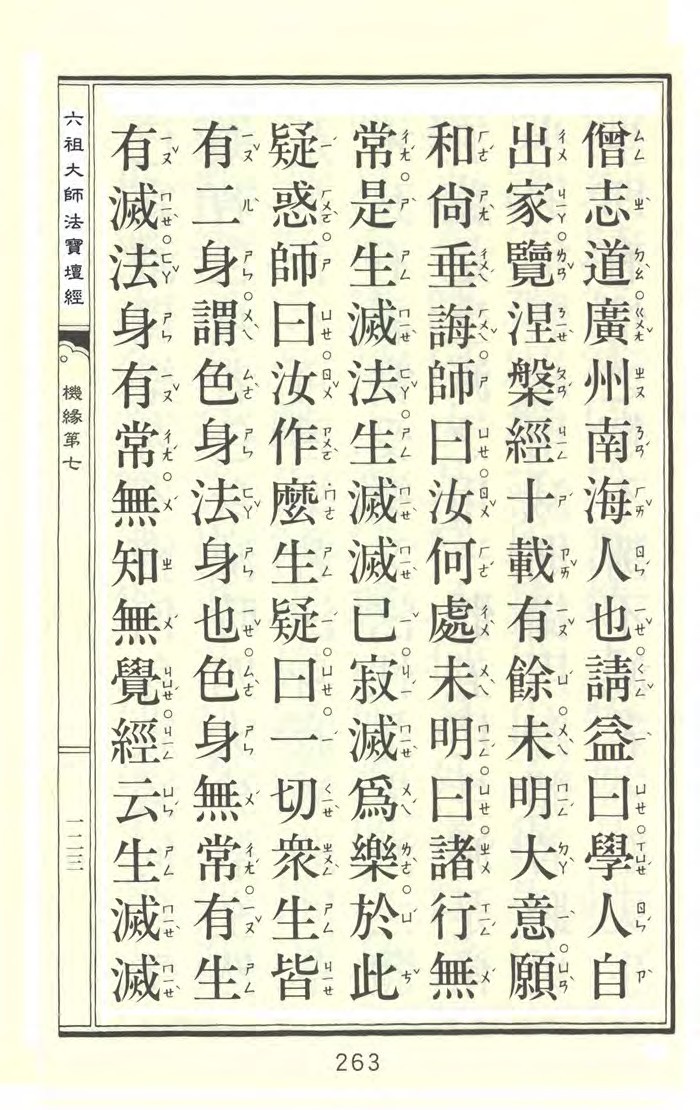 僧志道廣州南海人也請益曰學人自
出家覽涅槃經十載有餘未明大意願
和尚垂誨師曰汝何處未明曰諸行無
常是生滅法生滅滅已寂滅為樂於此
疑惑師曰汝作麼生疑曰一切眾生皆
有二身謂色身法身也色身無常有生
有滅法身有常無知無覺經云生滅滅
六祖大師法寶壇經
機緣第七
一二三
263